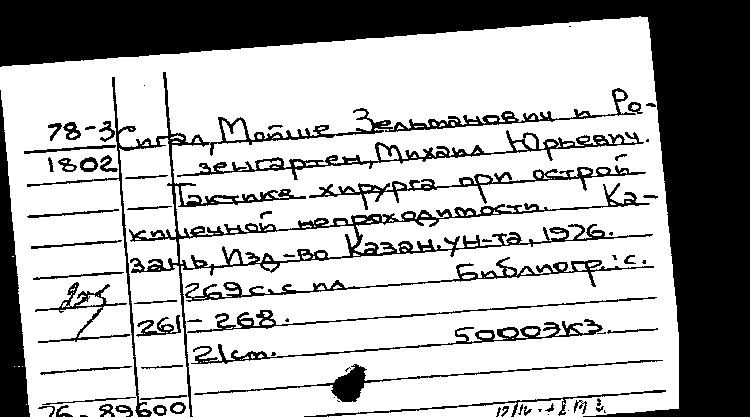 78-3 Сигал, Мойше Зельманович и Ро-
1802 зенгартен, Михаил Юрьевич.
Тактика хирурга при острой
кишечной непроходимости. Ка-
зань, Изд-во Казан. ун-та, 1976.
269 с. с ил. Библиогр.: с.
261-268.
21 см. 5000 экз.
76-89600